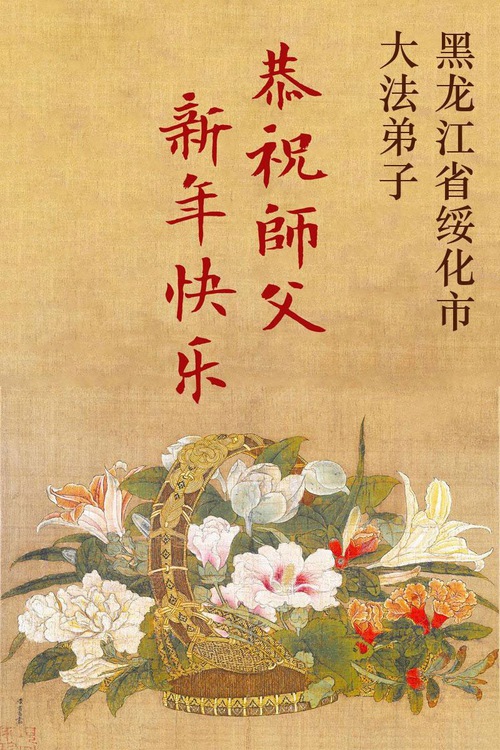 黑龙江省绥化市
大法弟子
恭祝師父
新年快乐